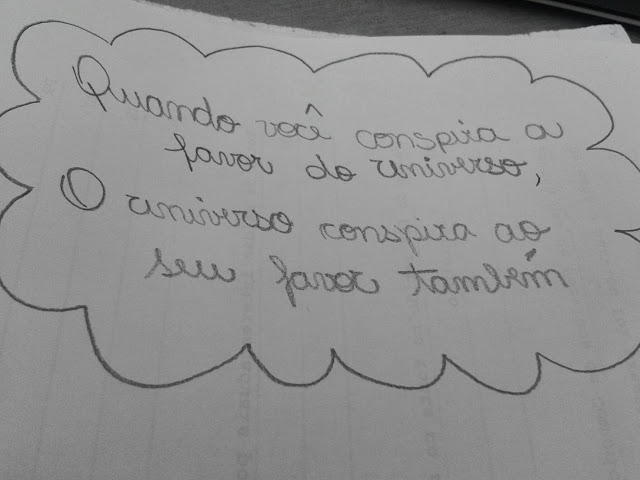 Quando você conspira a
favor do universo,
O universo conspira ao
seu favor também